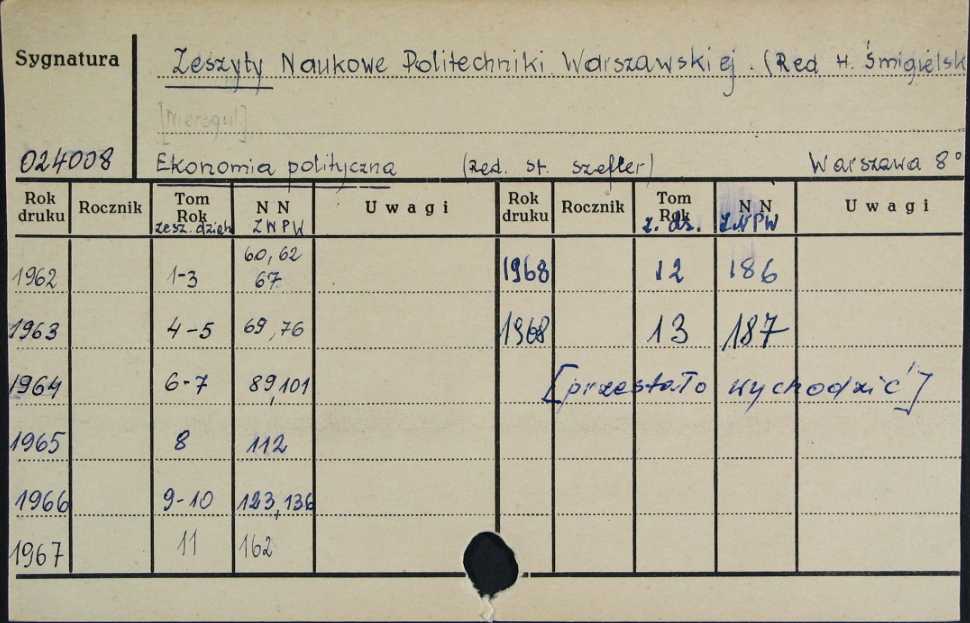 Sygnatura
Zeszyty Naukowe Politechniki Warszawskiej. (Red H. Śmigielsk
024008 Ekonomia polityczna (red. St. Szefler) Warszawa 8°
Rok druku Rocznik Tom Rok zesz. dzieł N N ZNPW Uwagi Rok druku Rocznik Tom Rok z. dz. N N ZNPW Uwagi
1962 1-3 60, 62 67 1968 12 186
1963 4-5 69, 76 1968 13 187
1964 6-7 89, 101 [przestało wychodzić]
1965 8 112
1966 9-10 123, 136
1967 11 162